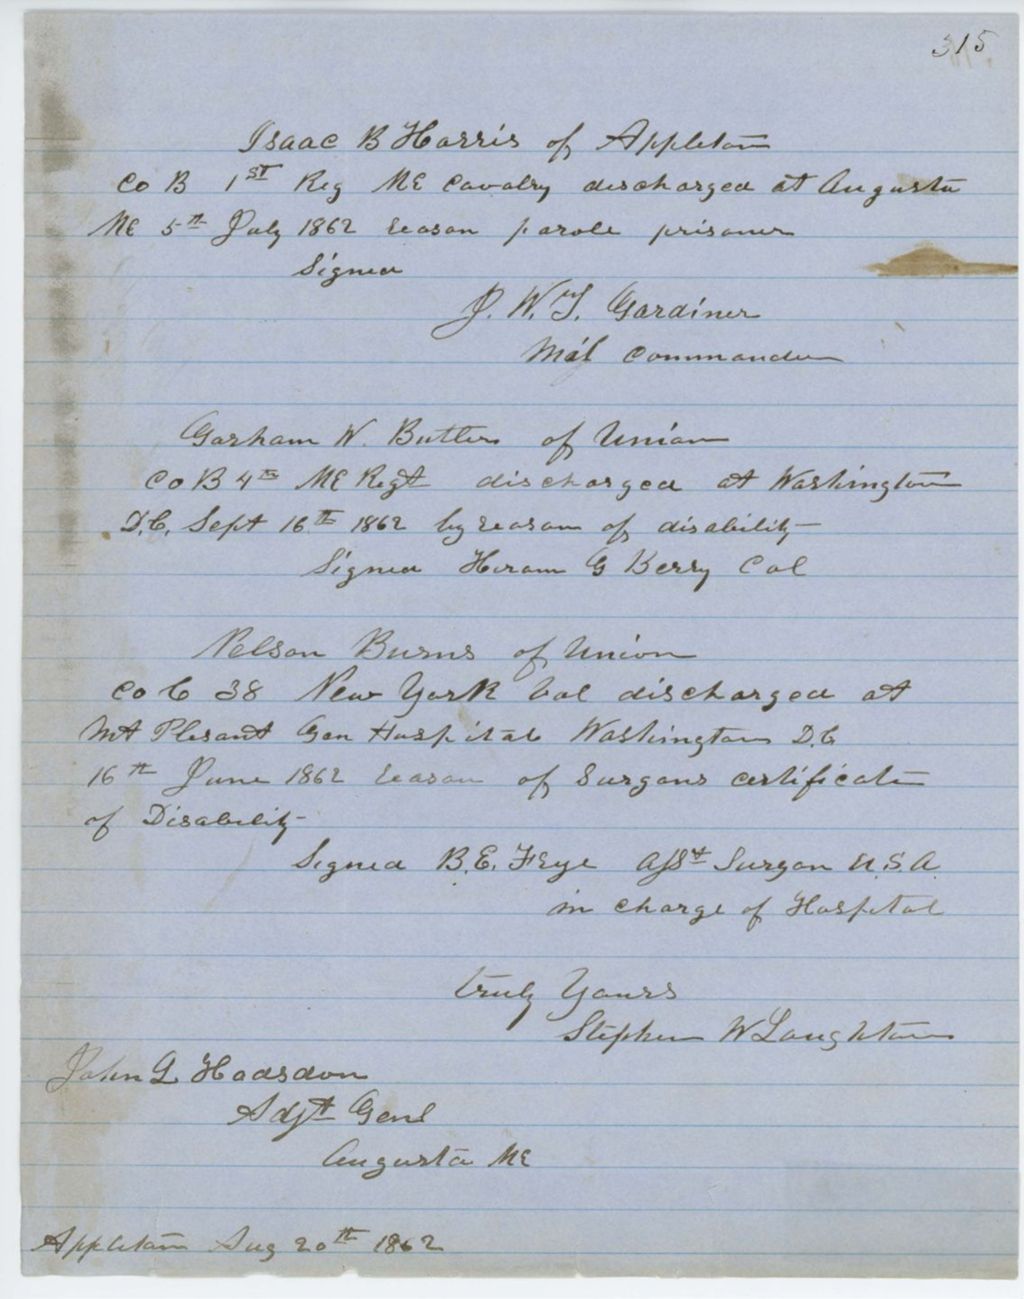 315
Isaac B Harris of Appleton
Co B 1st Reg ME Cavalry discharged at Augusta
ME 5th July 1862 reason parole prisoner
Signed
J. W. T. Gardiner
Maj Commander
Gorham W. Butlers of Union
Co B 4th ME Regt discharged at Washington
D.C. Sept 16th 1862 by reason of disability
Signed Hiram G Berry Col
Nelson Burns of Union
Co C 38 New York Vol discharged at
Mt Plesant Gen Hospital Washington D.C
16th June 1862 reason of Surgons certificate
of Disability
Signed B. E. Frye Asst Surgon U.S.A.
in charge of Hospital
truly Yours
Stephen W Laughton
John L Hodsdon
Adjt Genl
Augusta ME
Appleton Aug 20th 1862